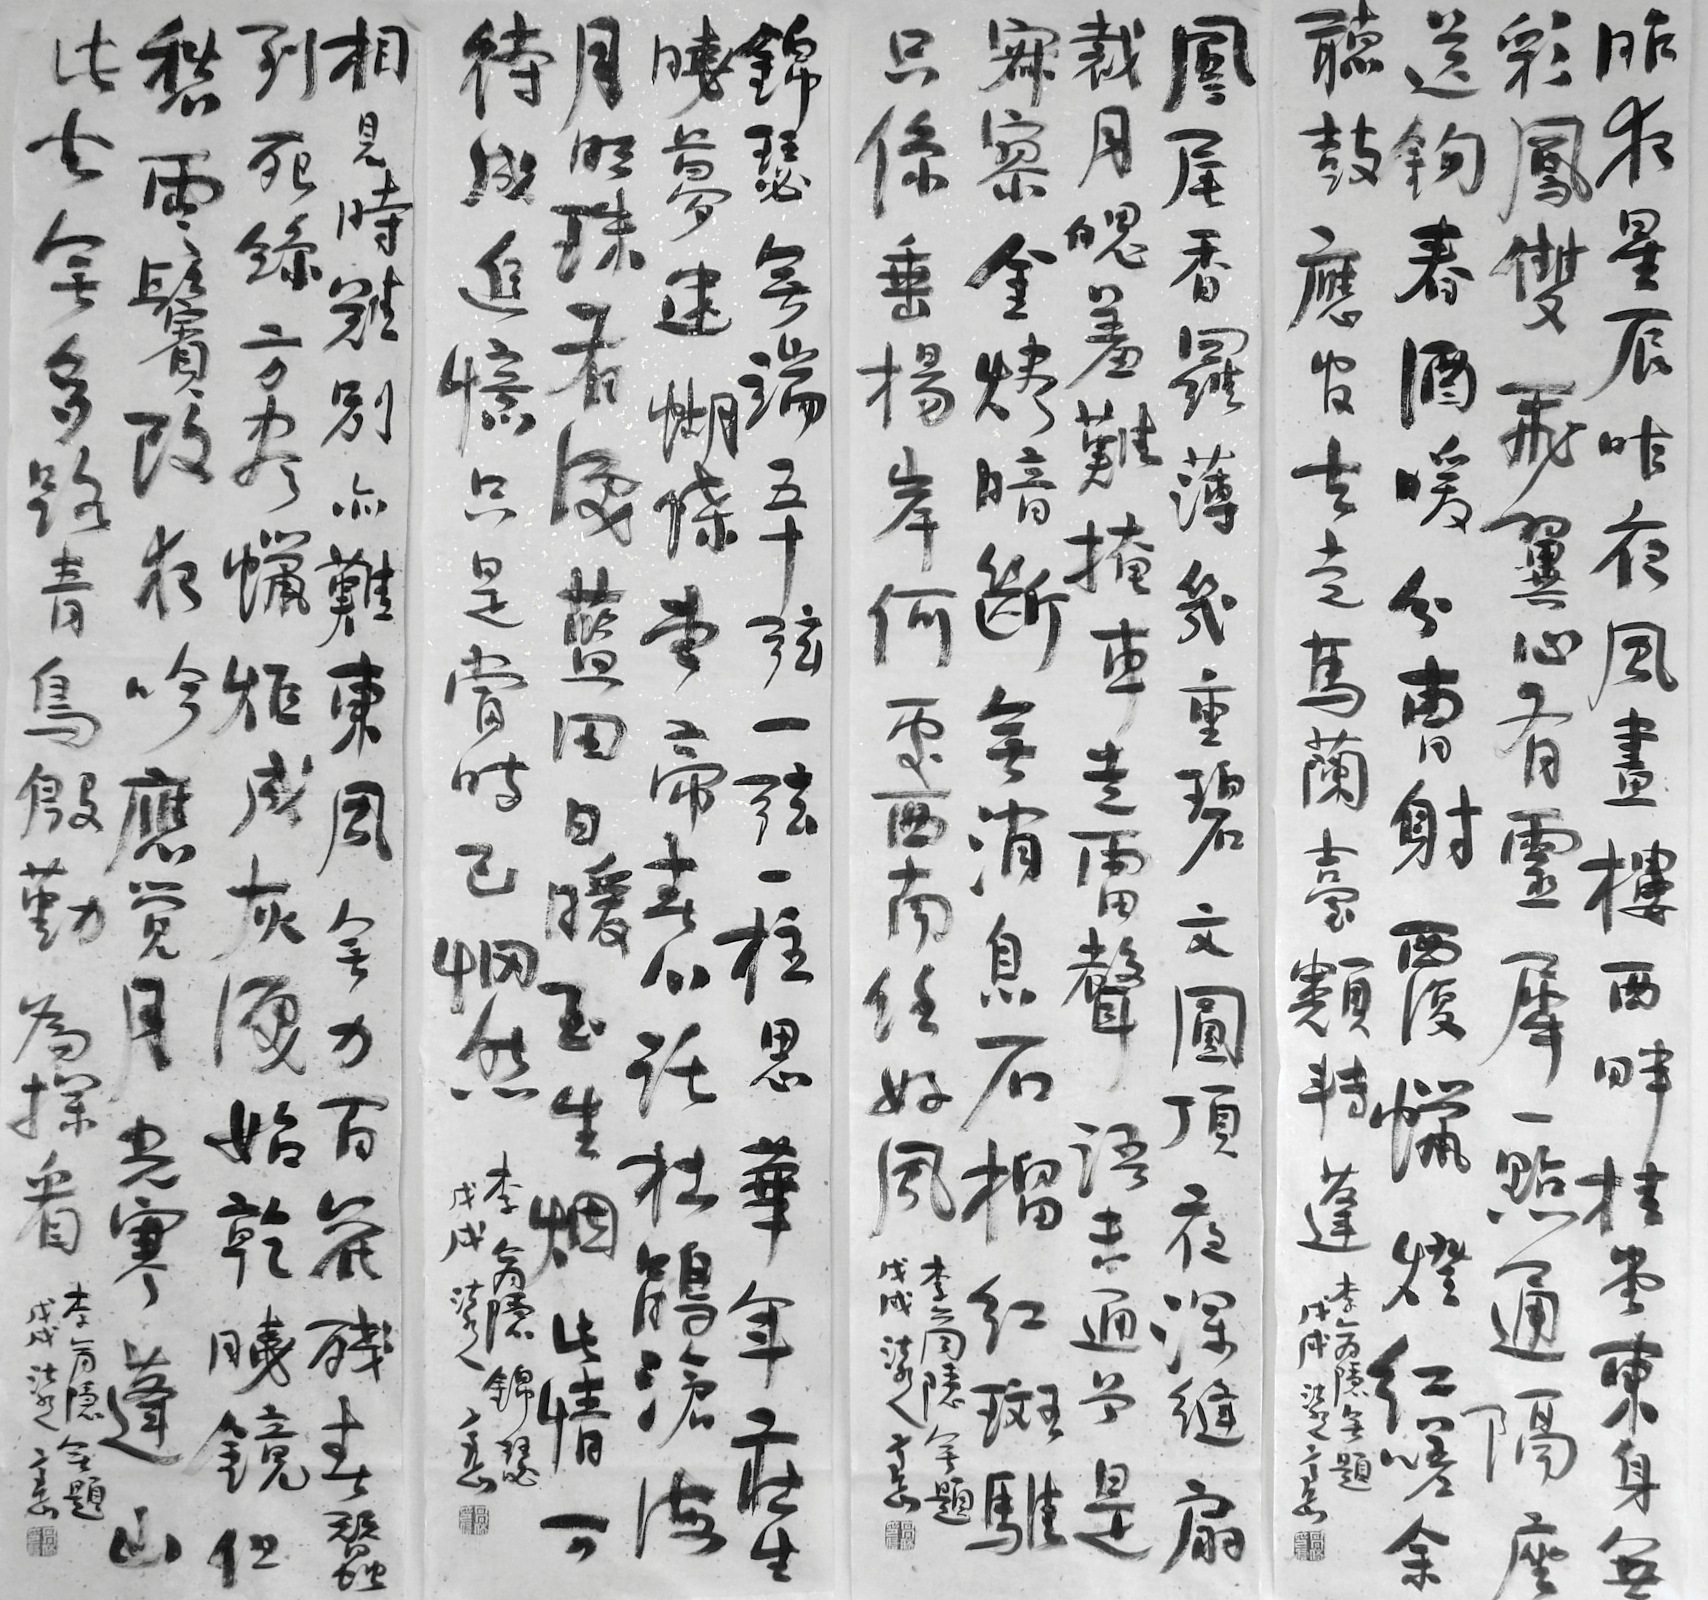 昨夜星辰昨夜風畫樓西畔桂堂東身無
彩鳳雙飛翼心有靈犀一點通隔座
送鉤春酒暖分曹射覆蠟燈紅嗟余
聽鼓應官去走馬蘭臺類轉蓬
李商隱無題
戊戌
鳳尾香羅薄幾重碧文圓頂夜深縫扇
裁月魄羞難掩車走雷聲語未通曾是
寂寥金燼暗斷無消息石榴紅斑騅
只係垂楊岸何處西南任好風
李商隱無題
戊戌
錦瑟無端五十弦一弦一柱思華年莊生
曉夢迷蝴蝶望帝春心託杜鵑滄海
月明珠有淚藍田日暖玉生烟此情可
待成追憶只是當時已惘然
李商隱錦瑟
戊戌
相見時難別亦難東風無力百花殘春蠶
到死絲方盡蠟炬成灰淚始乾曉鏡但
愁雲鬢改夜吟應覺月光寒蓬山
此去無多路青鳥殷勤為探看
李商隱無題
戊戌